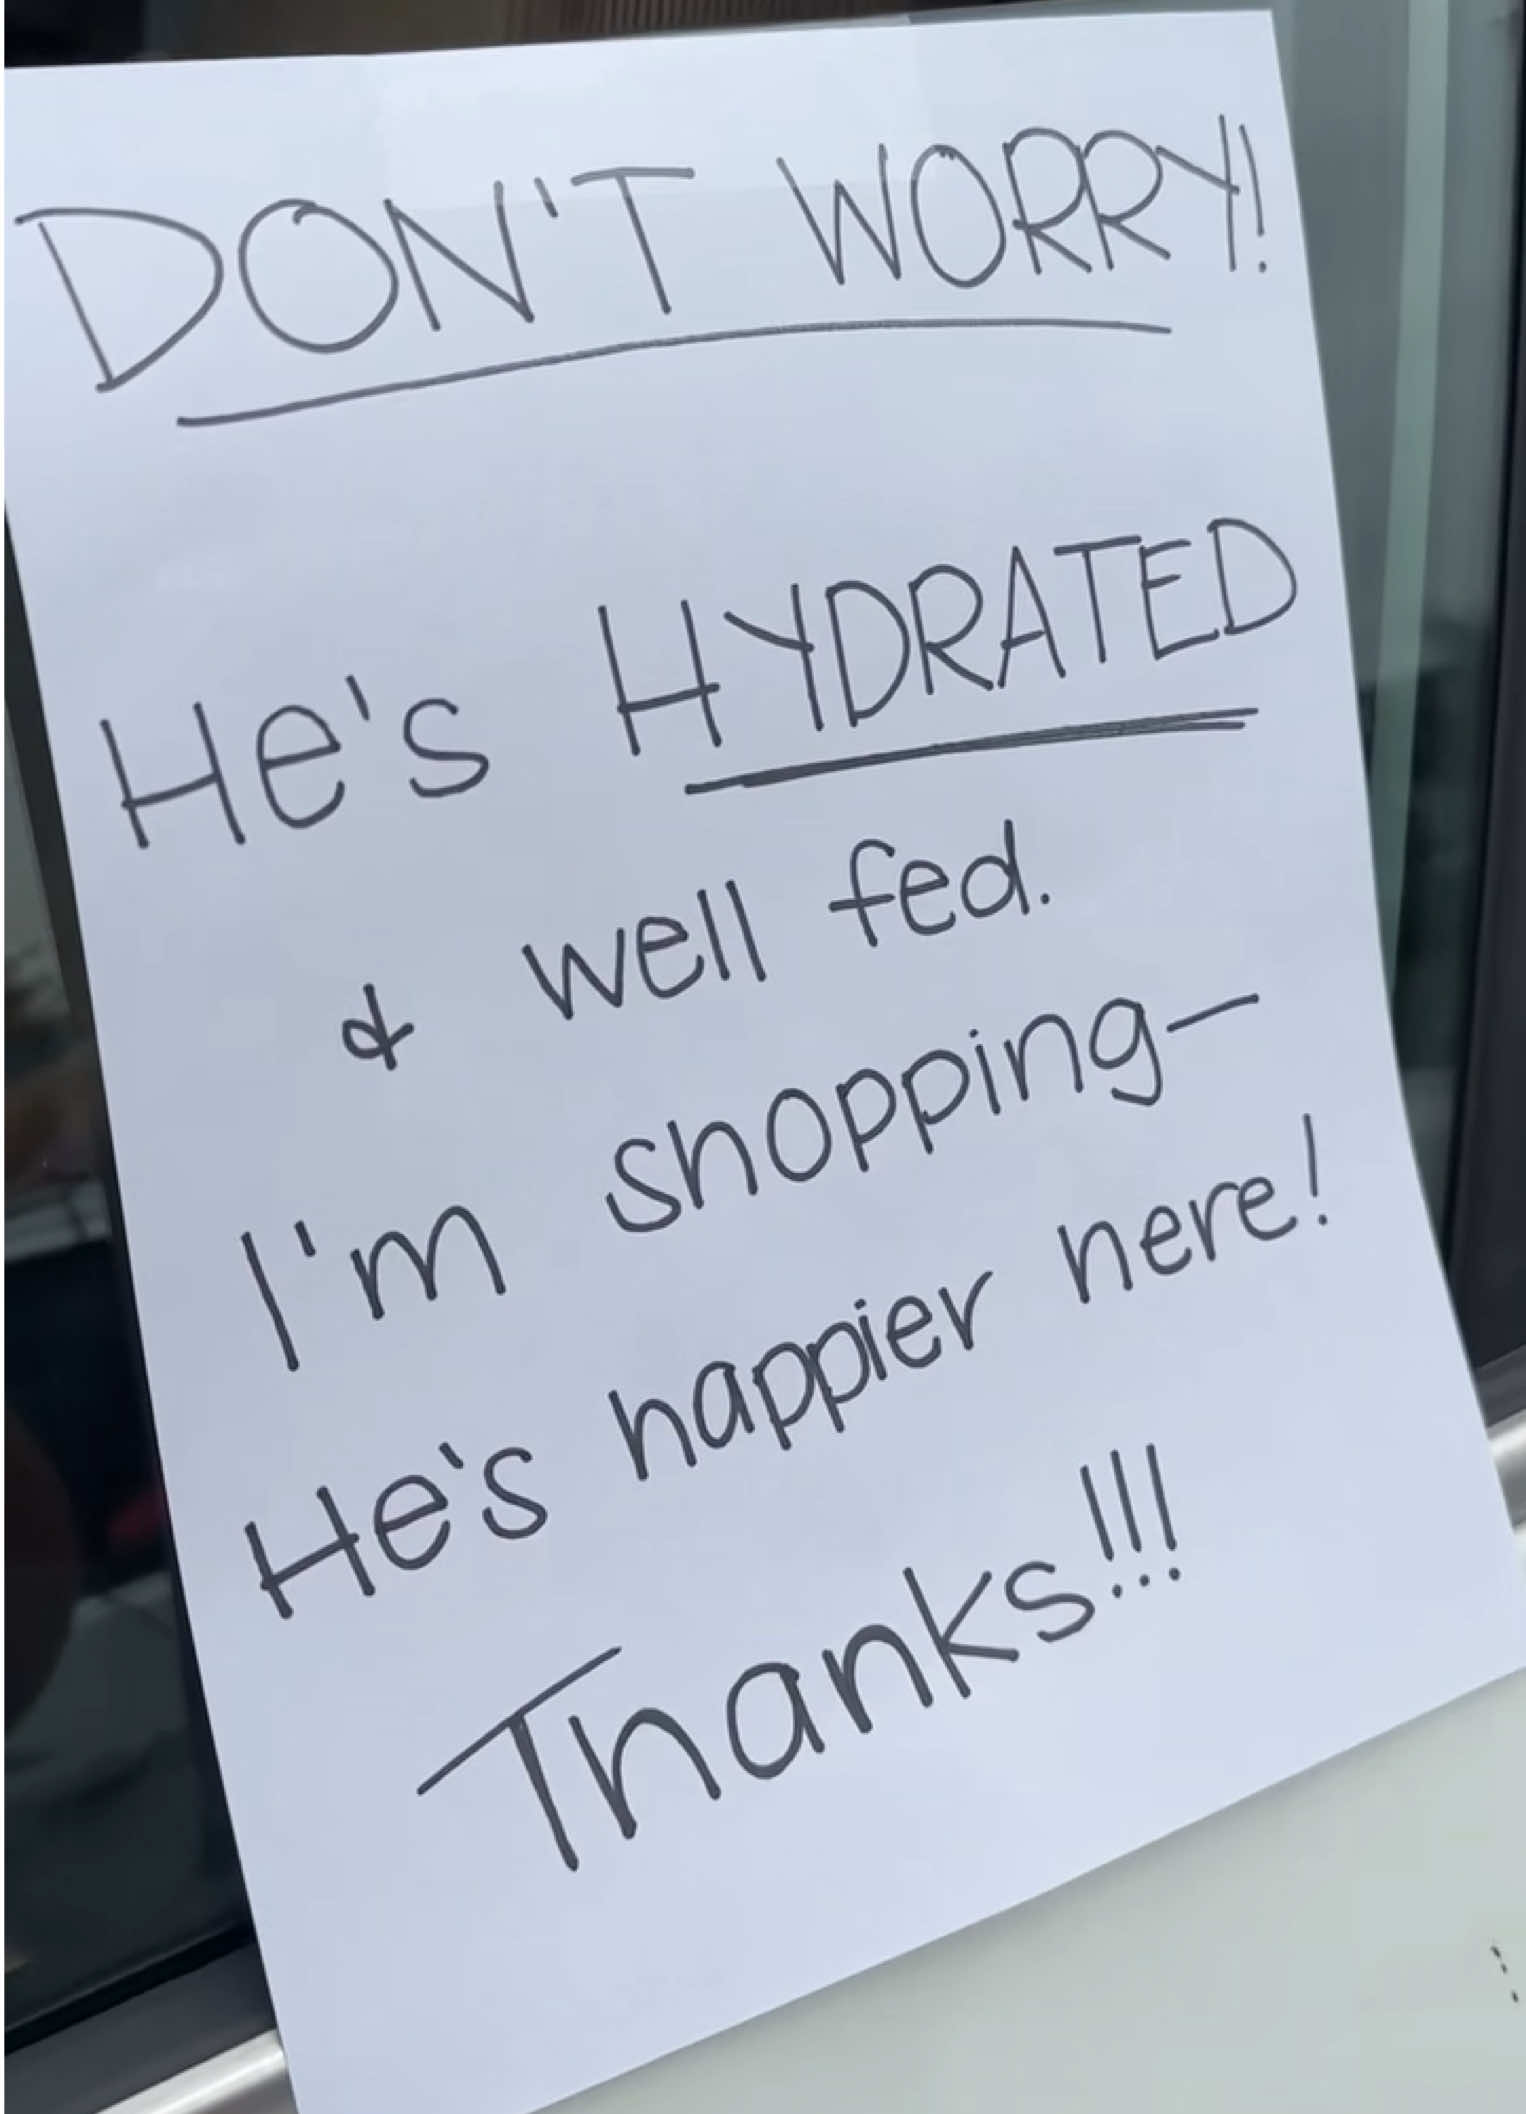 DON'T WORRY!
He's HYDRATED
& well fed.
I'm shopping—
He's happier here!
Thanks!!!